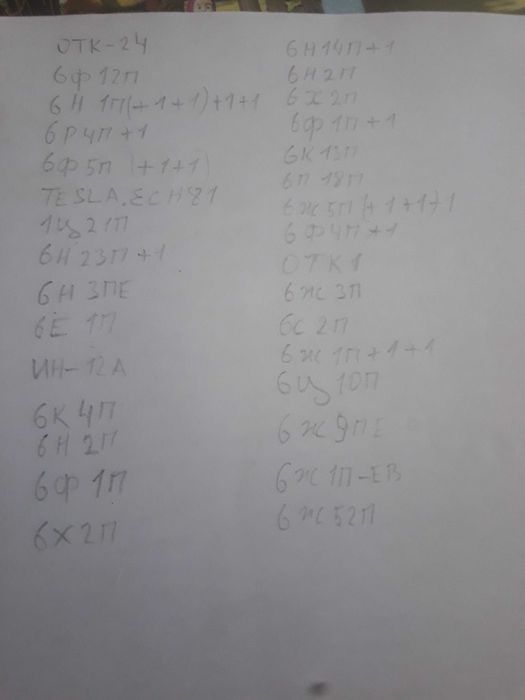 ОТК-24
6Ф12П
6Н 1П(+1+1)+1+1
6Р4П+1
6Ф5П (+1+1)
TESLA.ECH81
1Ц21П
6Н23П+1
6Н3ПЕ
6Е 1П
ИН-12А
6К4П
6Н2П
6Ф1П
6Х2П
6Н14П+1
6Н2П
6Х2П
6Ф1П+1
6К13П
6П18П
6Ж5П(+1+1)+1
6Ф4П+1
ОТК1
6Ж3П
6С2П
6Ж1П+1+1
6Ц10П
6Ж9ПЕ
6Ж1П-ЕВ
6Ж52П